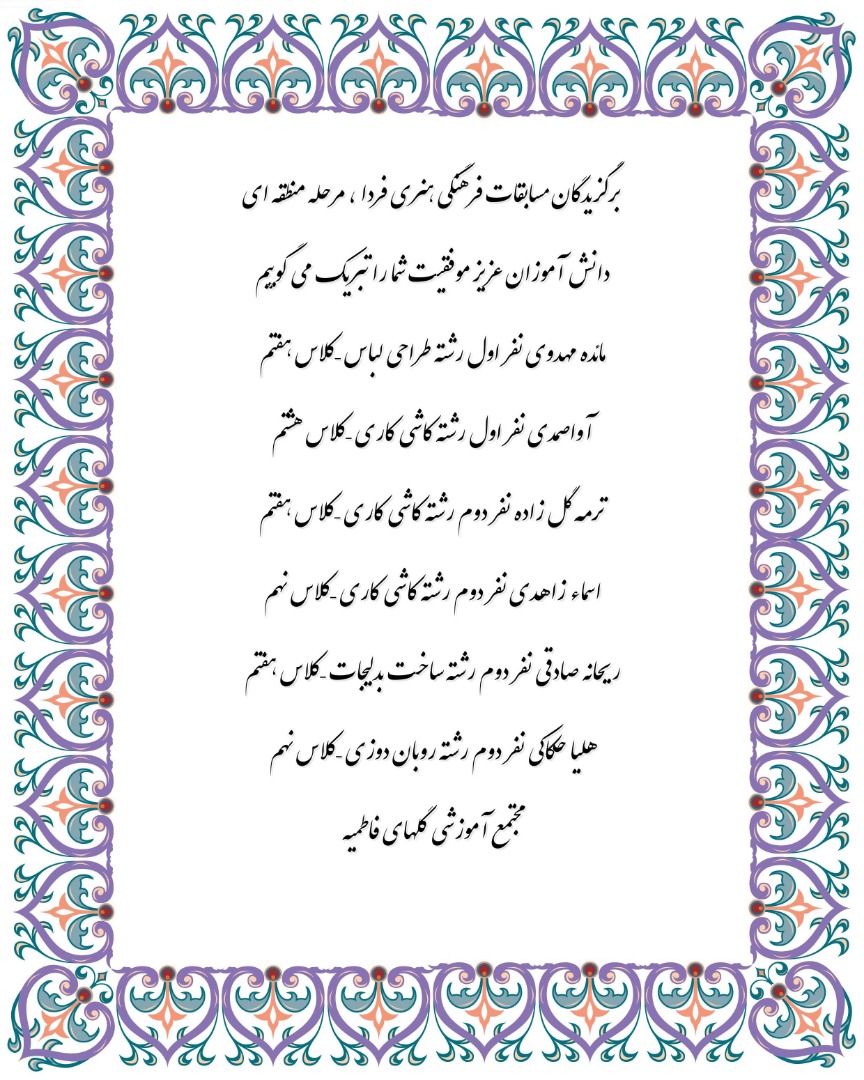 برگزیدگان مسابقات فرهنگی هنری فردا ، مرحله منطقه ای
دانش آموزان عزیز موفقیت شما را تبریک می گوییم
مائده مهدوی نفر اول رشته طراحی لباس-کلاس هفتم
آوا صمدی نفر اول رشته کاشی کاری-کلاس هشتم
ترمه گل زاده نفر دوم رشته کاشی کاری-کلاس هفتم
اسماء زاهدی نفر دوم رشته کاشی کاری-کلاس نهم
ریحانه صادقی نفر دوم رشته ساخت بدلیجات-کلاس هفتم
هلیا حکاکی نفر دوم رشته روبان دوزی-کلاس نهم
مجتمع آموزشی گلهای فاطمیه